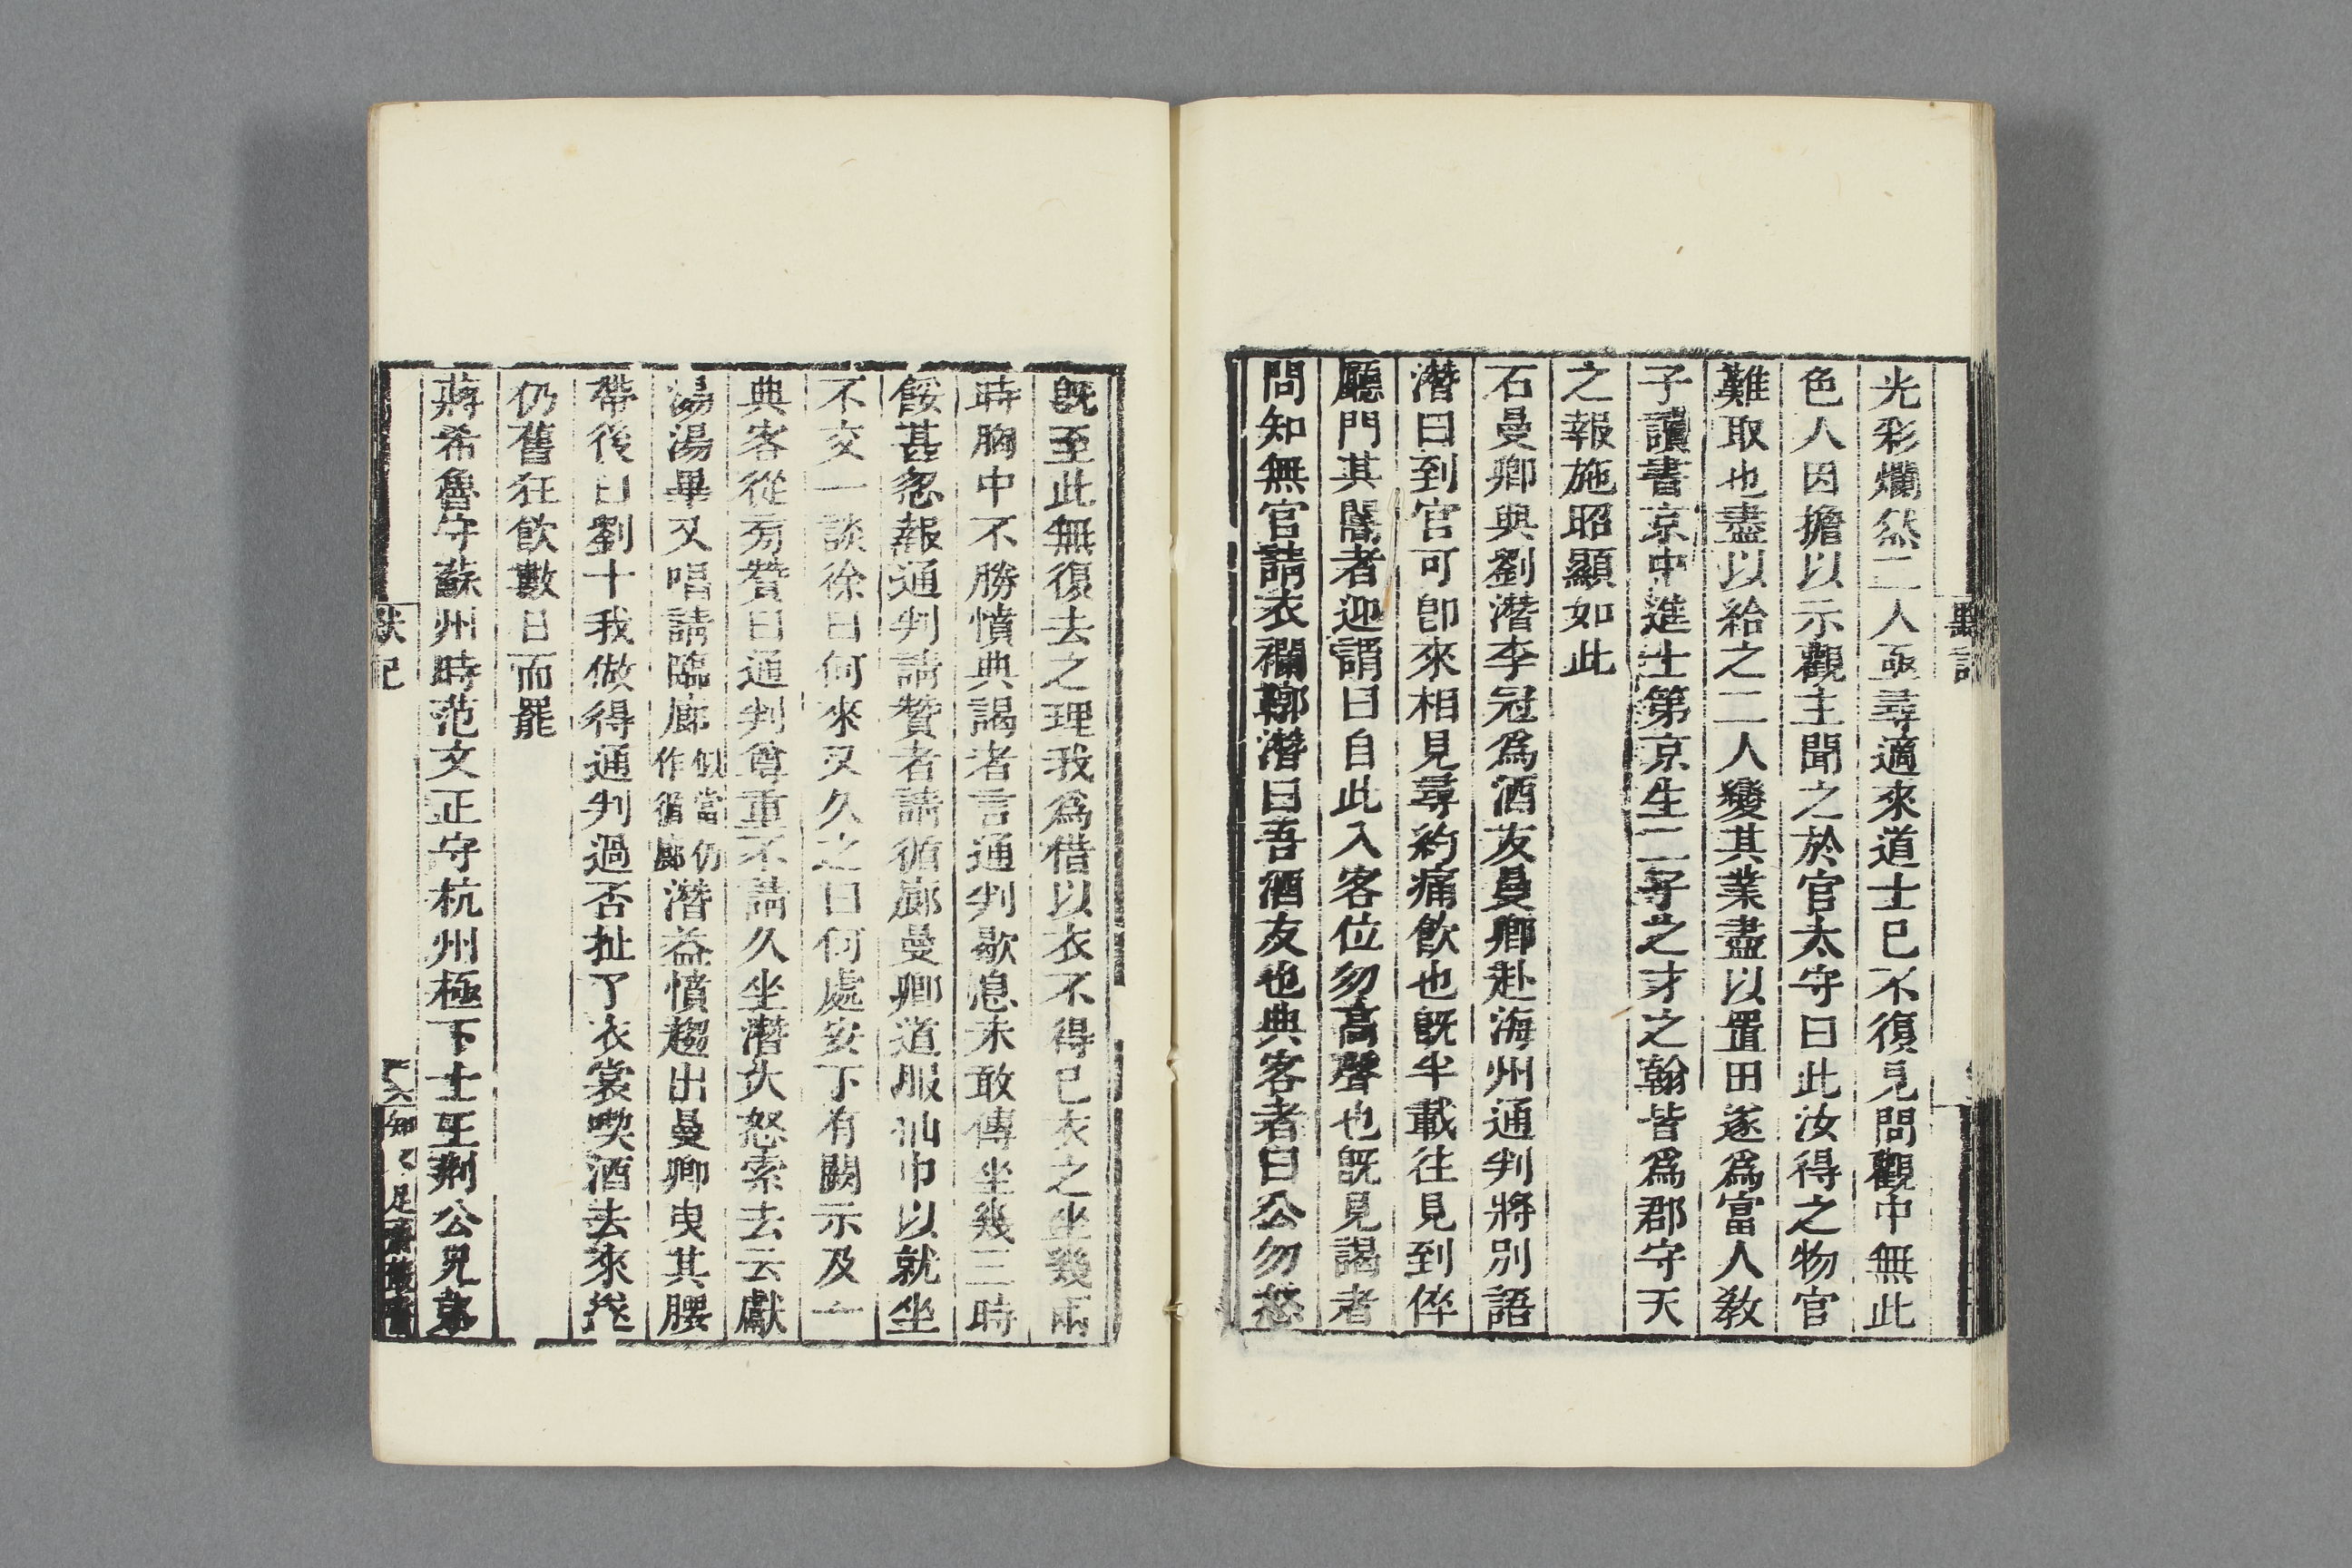 光彩爛然二人亟尋適來道士已不復見問觀中無此
色人因擔以示觀主聞之於官太守曰此汝得之物官
難取也盡以給之二人變其業盡以置田遂爲富人敎
子讀書京中進士第京生二子之才之翰皆爲郡守天
之報施昭顯如此
石曼卿與劉潛李冠爲酒友曼卿赴海州通判將別語
潛曰到官可卽來相見尋約痛飮也旣半載往見到倅
廳門其閽者迎謂曰自此入客位勿高聲也旣見謁者
問知無官請衣襴鞹潛曰吾酒友也典客者曰公勿怒
旣至此無復去之理我爲借以衣不得已衣之坐幾兩
時胸中不勝憤典謁者言通判歇息未敢傳坐幾三時
餒甚忽報通判請贊者請循廊曼卿道服仙巾以就坐
不交一談徐曰何來又久之曰何處安下有闕示及一
典客從旁贊曰通判尊重不請久坐潛大怒索去云獻
湯湯畢又唱請臨廊似當仍作循廊潛益憤趨出曼卿曳其腰
帶後曰劉十我做得通判過否扯了衣裳喫酒去來遂
仍舊狂飮數日而罷
蔣希魯守蘇州時范文正守杭州極下士王荆公兄弟